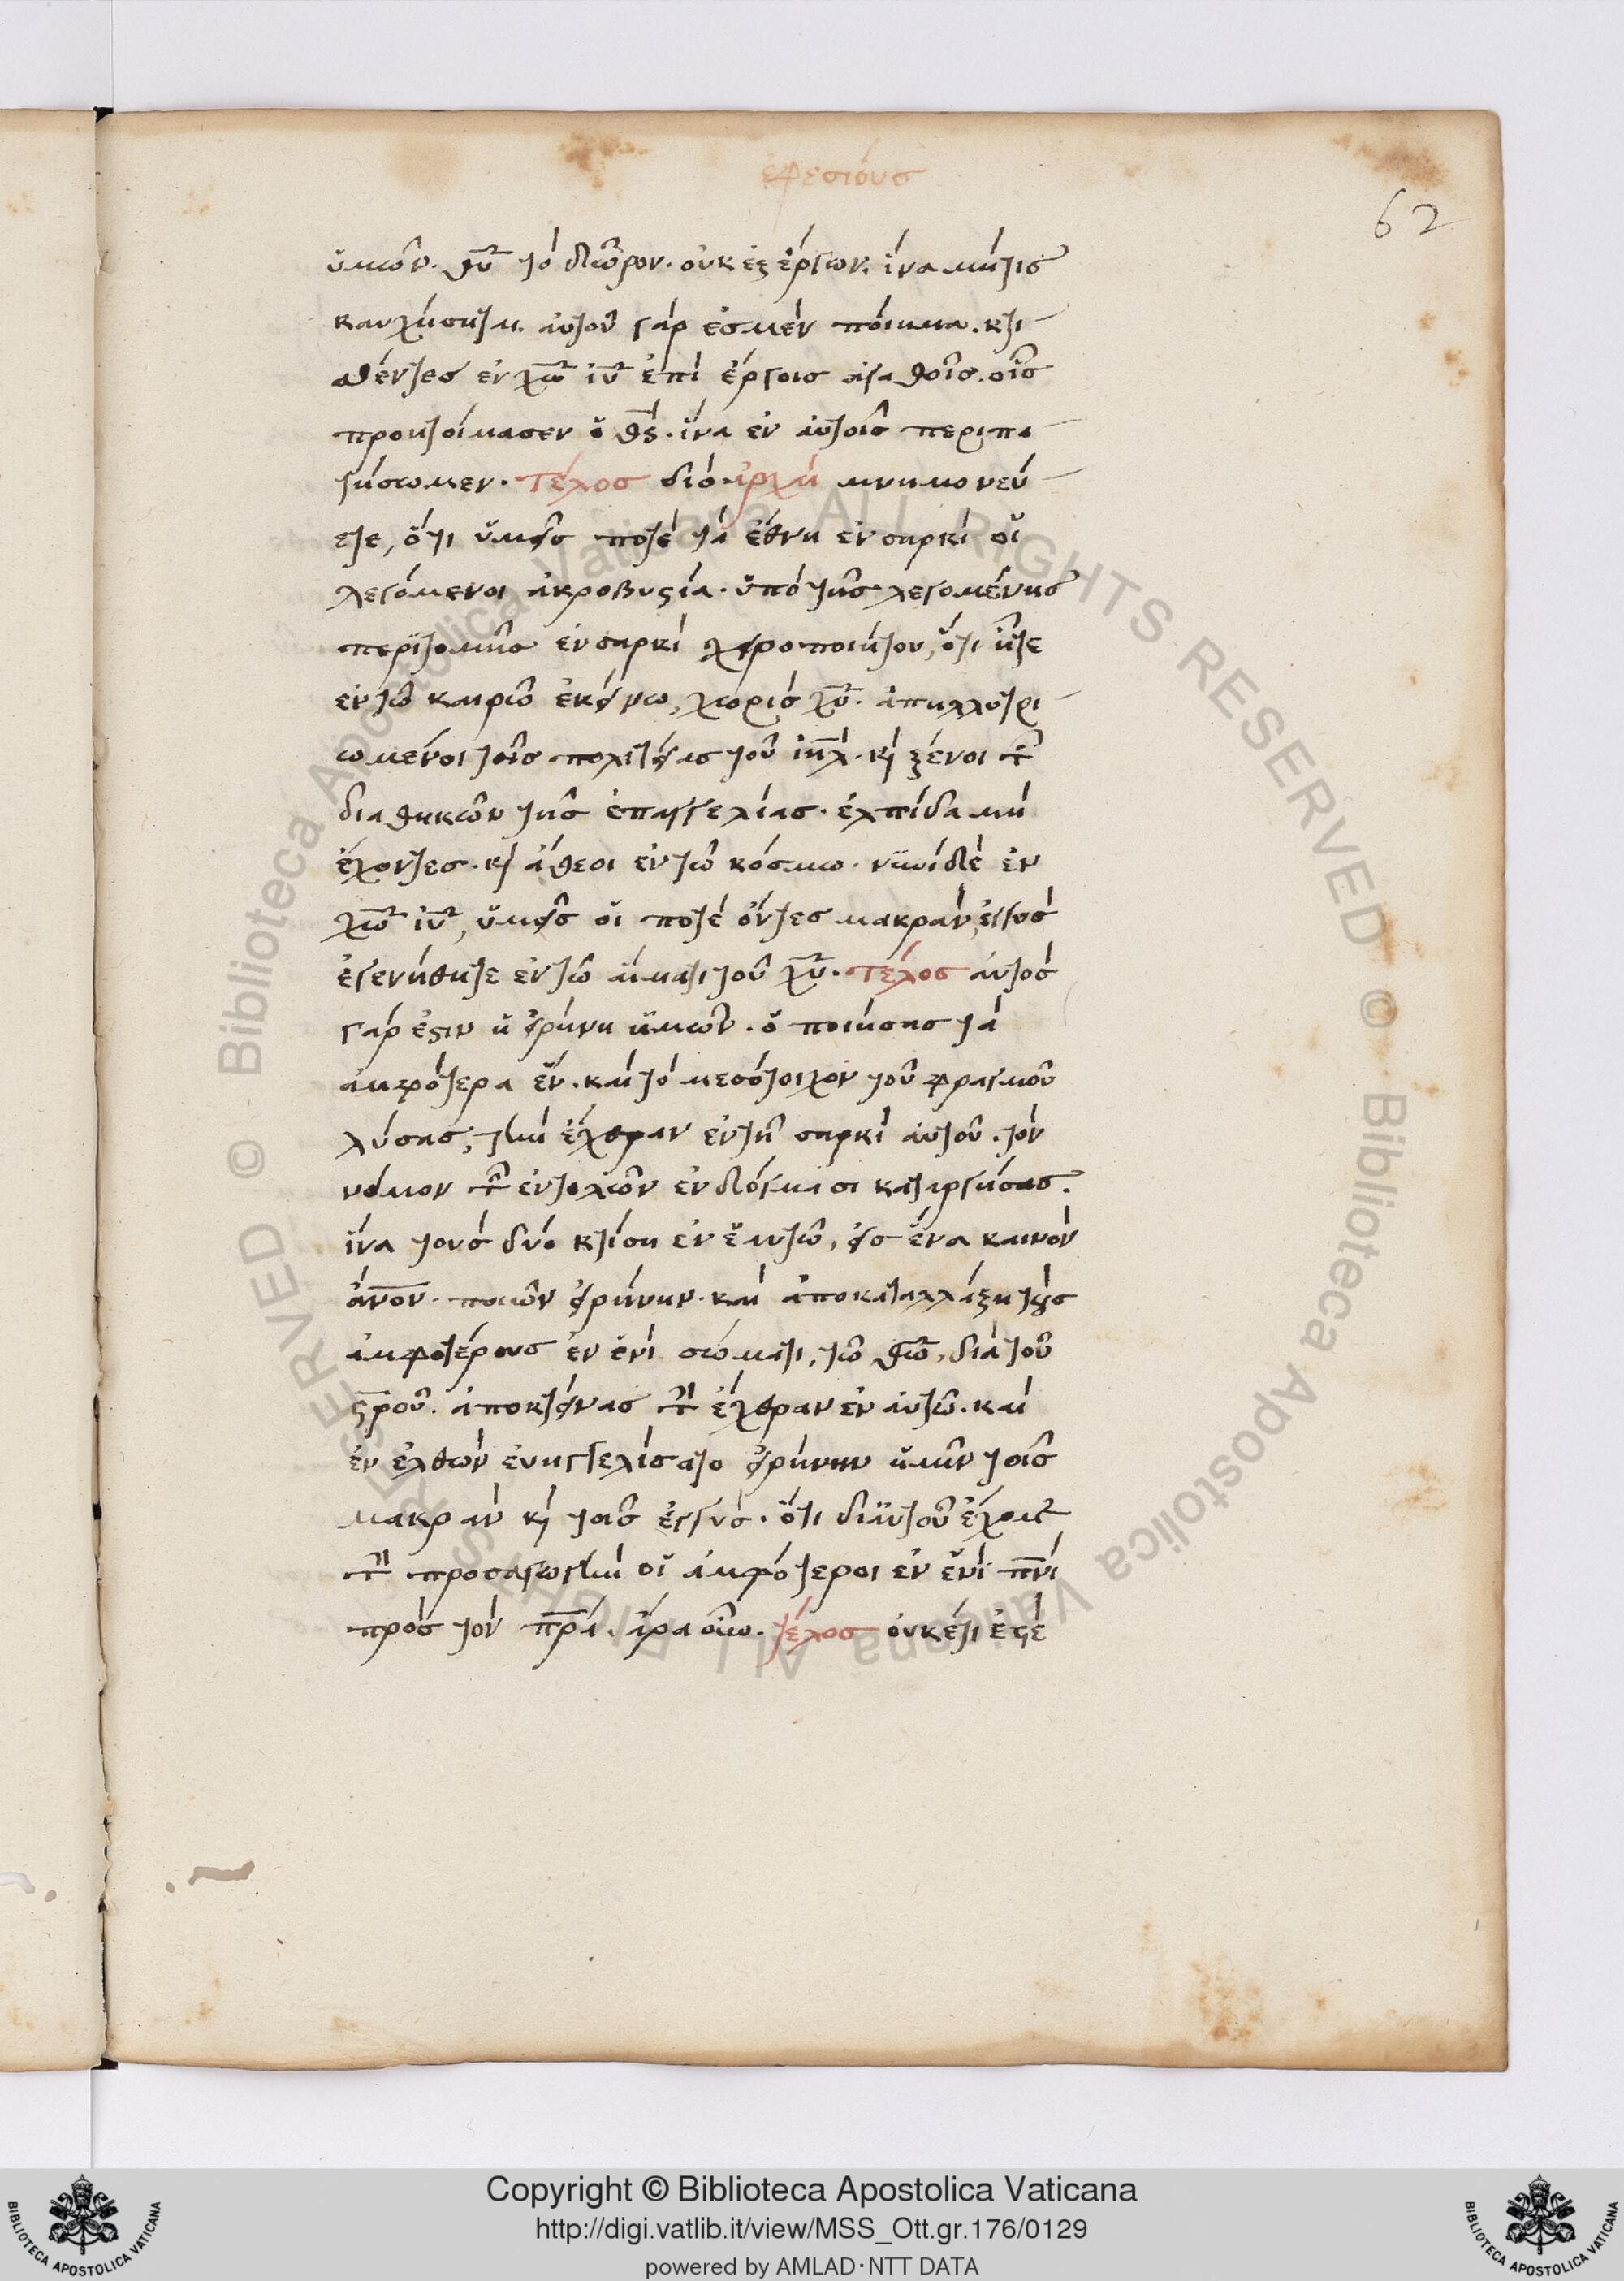 ἐφεσίους
62
ὑμῶν. θῦ τὸ δῶρον. οὐκ ἐξ ἔργων. ἵνα μήτις
καυχήσηται. αὐτοῦ γάρ ἐσμὲν ποίημα. κτι
σθέντες ἐν χῶ ἰῦ ἐπὶ ἔργοις ἀγαθοῖς. οἷς
προητοίμασεν ὁ θς. ἵνα ἐν αὐτοῖς περιπα
τήσωμεν. τέλος διό. ἀρχὴ μνημονεύ
ετε, ὅτι ὑμεῖς ποτὲ τὰ ἔθνη ἐν σαρκὶ οἱ
λεγόμενοι ἀκροβυστία. ὑπὸ τῆς λεγομένης
περιτομῆς ἐν σαρκὶ χειροποιήτου, ὅτι ἦτε
ἐν τῶ καιρῶ ἐκείνω, χωρὶς χῦ. ἀπηλλοτρι
ωμένοι τοῖς πολιτείας τοῦ ἰηλ. κὶ ξένοι τῶν
διαθηκῶν τῆς ἐπαγγελίας. ἐλπίδα μὴ
ἔχοντες. κὶ ἄθεοι ἐν τῶ κόσμω. νυνὶ δὲ ἐν
χῶ ἰῦ, ὑμεῖς οἱ ποτὲ ὄντες μακρὰν, ἐγγὺς
ἐγενήθητε ἐν τῶ αἵματι τοῦ χῦ. τέλος αὐτὸς
γάρ ἐστιν ἡ εἰρήνη ἡμῶν. ὁ ποιήσας τὰ
ἀμφότερα ἕν. καὶ τὸ μεσότοιχον τοῦ φραγμοῦ
λύσας, τὴν ἔχθραν ἐν τῆ σαρκὶ αὐτοῦ. τὸν
νόμον τῶν ἐντολῶν ἐν δόγμασι καταργήσας.
ἵνα τοὺς δύο κτίση ἐν ἑαυτῶ, εἰς ἕνα καινὸν
ἄνον. ποιῶν εἰρήνην. καὶ ἀποκαταλλάξη τοὺς
ἀμφοτέρους ἐν ἑνὶ σώματι, τῶ θῶ, διὰ τοῦ
στρου. ἀποκτείνας τὴν ἔχθραν ἐν αὐτῶ. καὶ
ἐν ἐλθὼν εὐηγγελίσατο εἰρήνην ὑμῖν τοῖς
μακρὰν κὶ τοῖς ἐγγύς. ὅτι δι' αὐτοῦ ἔχομεν
τὴν προσαγωγὴν οἱ ἀμφότεροι ἐν ἑνὶ πνι
πρὸς τὸν πρα. ἄρα οὖν. τέλος οὐκέτι ἐστὲ
Copyright © Biblioteca Apostolica Vaticana
http://digi.vatlib.it/view/MSS_Ott.gr.176/0129
powered by AMLAD·NTT DATA